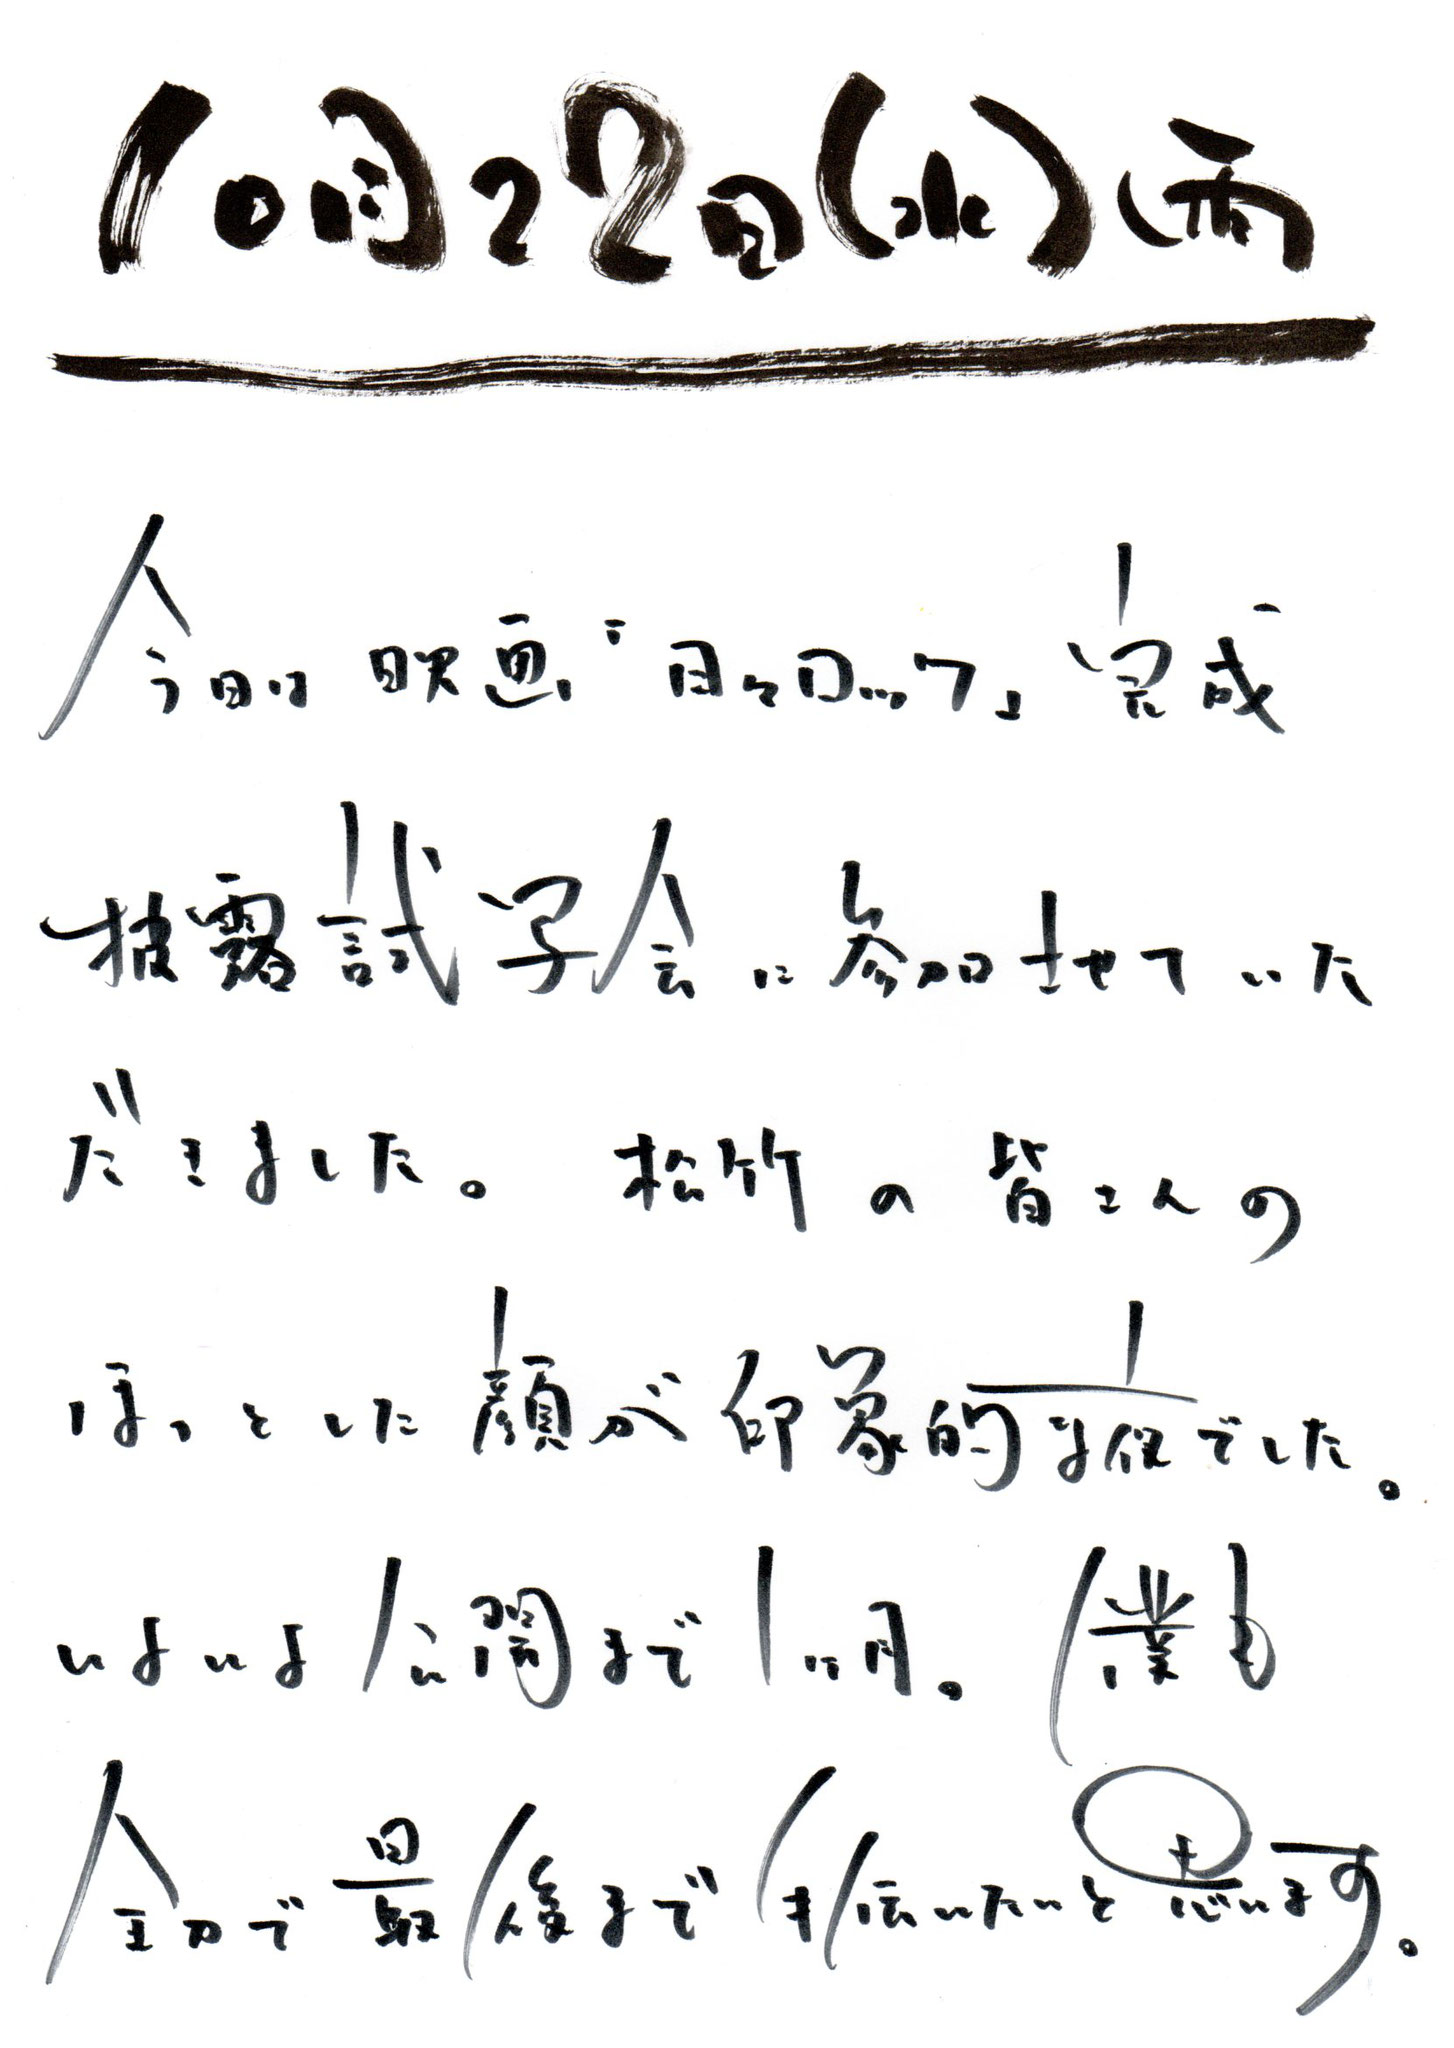 10月22日(水)雨
今日は映画「日々ロック」完成
披露試写会に参加させていた
だきました。松竹の皆さんの
ほっとした顔が印象的な夜でした。
いよいよ公開まで1ヶ月。僕も
全力で最後まで手伝いたいと思います。